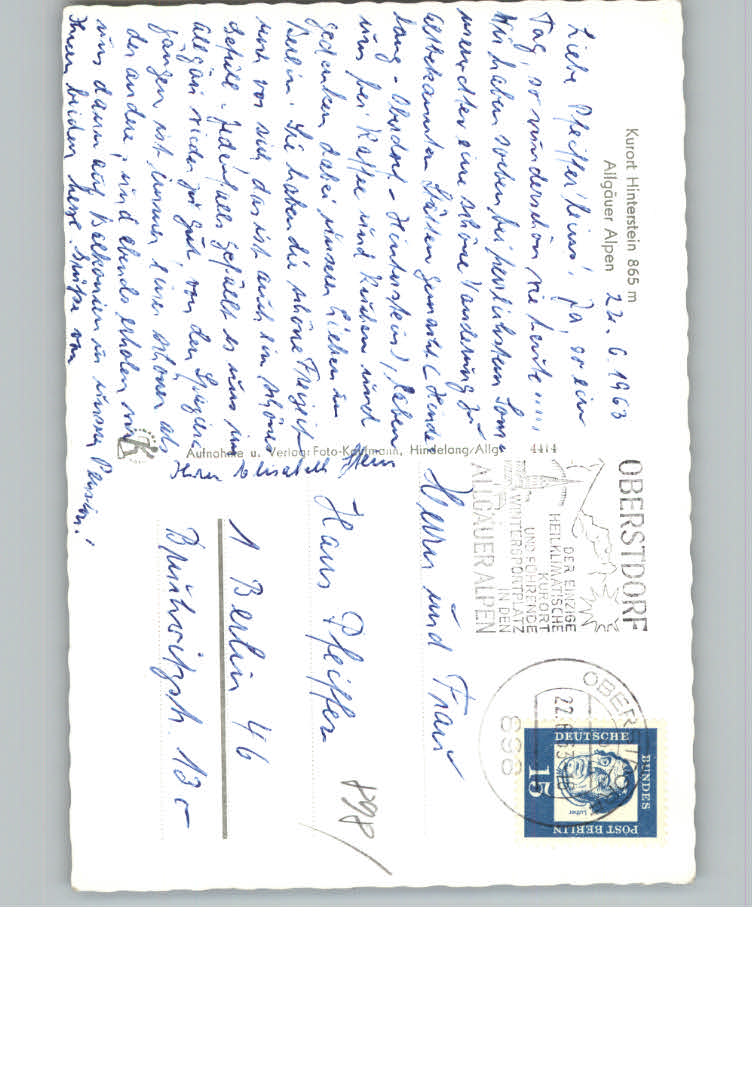 Kurort Hinterstein 865 m
Allgäuer Alpen
22. 6. 1963
Liebe Pfeifferleins! Ja, so ein
Tag, so wunderschön wie heute!!!!
Wir haben soeben bei herrlichstem Sonn
wetter eine schöne Wanderung zu
altbekannten Stätten gemacht (Hinde-
lang - Oberdorf - Hinterstein), laben
uns bei Kaffee und Kuchen und
gedenken dabei unserer Lieben in
Berlin. Sie haben die schöne Freizeit
noch vor sich, das ist auch ein schönes
Gefühl. Jedenfalls gefällt es uns im
Allgäu wieder sehr gut von den Spazier-
gängen ist immer einer schöner als
der andere, und abends erholen wir
uns dann auf Balkonien in unserer Pension!
Ihnen beiden herzl. Grüße von
Ihren Elisabeth
Aufnahme u. Verlag: Foto-Kaufmann, Hindelang/Allg.
4414
OBERSTDORF
DER EINZIGE
HEILKLIMATISCHE
KURORT
UND FÜHRENDE
WINTERSPORTPLATZ
IN DEN
ALLGÄUER ALPEN
OBERST
22.6.63
898
DEUTSCHE
BUNDES
POST BERLIN
15
Luther
Herrn und Frau
Hans Pfeiffer
1 Berlin 46
Bruchwitzstr. 13c
898/